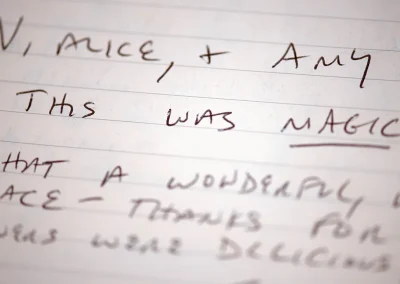 V, ALICE, + AMY
THIS WAS MAGIC
HAT A WONDERFUL,
ACE - THANKS FOR
WERE DELICIOUS